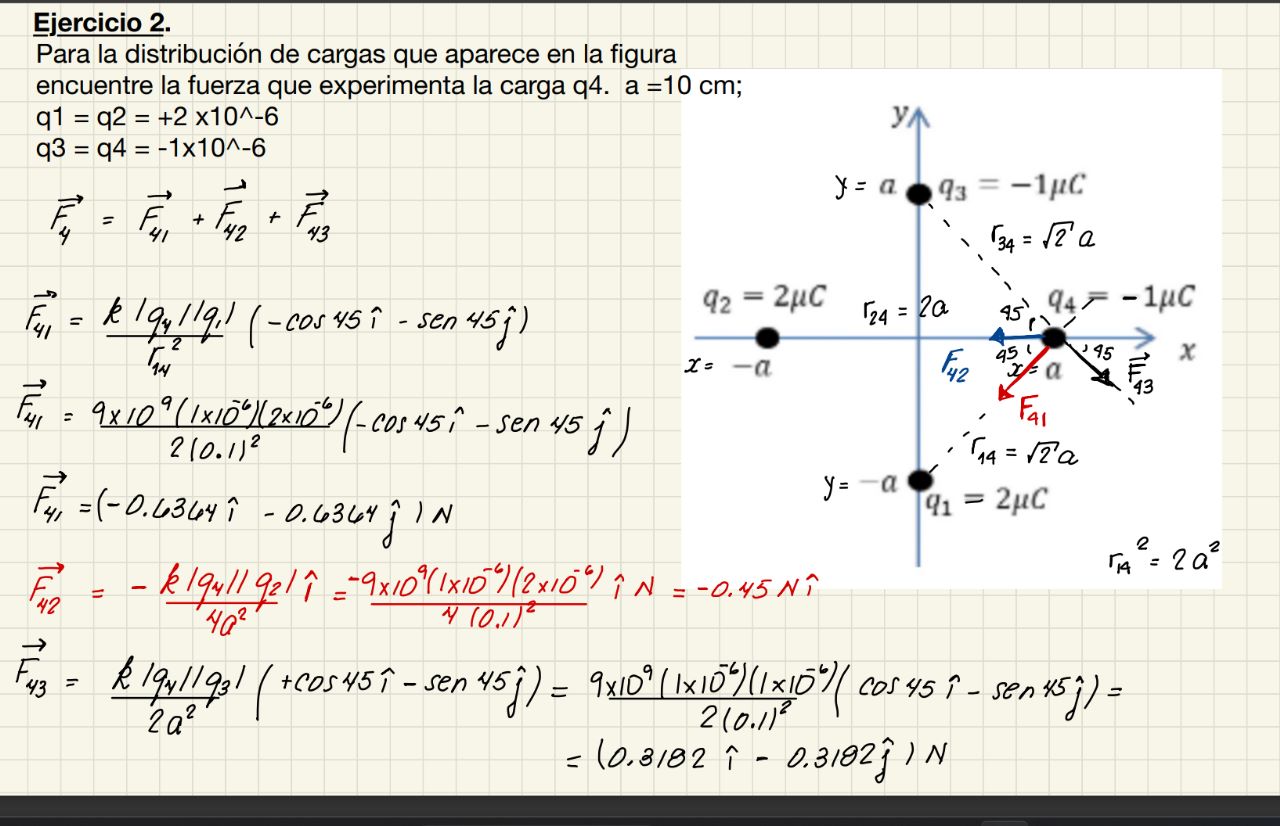 Ejercicio 2.
Para la distribución de cargas que aparece en la figura
encuentre la fuerza que experimenta la carga q4.  a =10 cm;
q1 = q2 = +2 x10^-6
q3 = q4 = -1x10^-6
F⃗₄ = F⃗₄₁ + F⃗₄₂ + F⃗₄₃
F⃗₄₁ = k|q₄||q₁| / r₁₄² (-cos 45 î - sen 45 ĵ)
F⃗₄₁ = 9x10⁹(1x10⁻⁶)(2x10⁻⁶) / 2(0.1)² (-cos 45 î - sen 45 ĵ)
F⃗₄₁ = (-0.6364 î - 0.6364 ĵ) N
F⃗₄₂ = - k|q₄||q₂| / 4a² î = -9x10⁹(1x10⁻⁶)(2x10⁻⁶) / 4(0.1)² î N = -0.45 N î
F⃗₄₃ = k|q₄||q₃| / 2a² (+cos 45 î - sen 45 ĵ) = 9x10⁹(1x10⁻⁶)(1x10⁻⁶) / 2(0.1)² (cos 45 î - sen 45 ĵ) =
= (0.3182 î - 0.3182 ĵ) N
y
y = a
q₃ = −1μC
r₃₄ = √2 a
q₂ = 2μC
r₂₄ = 2a
45
q₄ = -1μC
x = −a
F₄₂
45
x = a
45
F⃗₄₃
x
F₄₁
r₁₄ = √2 a
y = −a
q₁ = 2μC
r₁₄² = 2a²